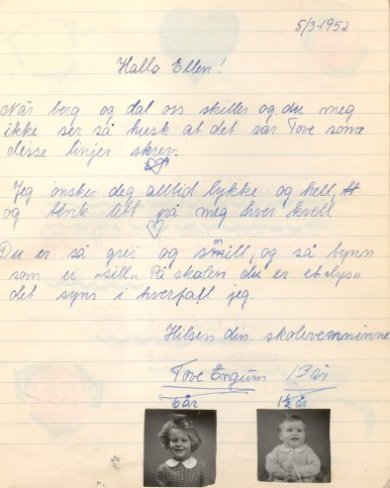 5/3-1952
Hallo Ellen!
Når berg og dal oss skiller og du meg
ikke ser så husk at det var Tove som
disse linjer skrev.
Jeg ønsker deg alltid lykke og hell,
og tenk litt på meg hver kvell
Du er så grei og snill, og så tynn
som ei "sill". På skolen du er et "lys"
det syns i hverfall jeg.
Hilsen din skolevenninne
Tove Engum 13 år
6 år 1½ år